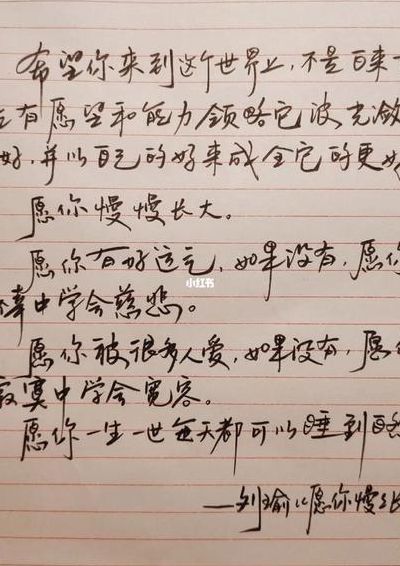 希望你来到这个世界上，不是白来一
有愿望和能力领略它波光潋
好，并以自己的好来成全它的更
愿你慢慢长大。
愿你有好运气，如果没有，愿你
幸中学会慈悲。
小红书
愿你被很多人爱，如果没有，愿
寂寞中学会宽容。
愿你一生一世每天都可以睡到
——刘瑜《愿你慢